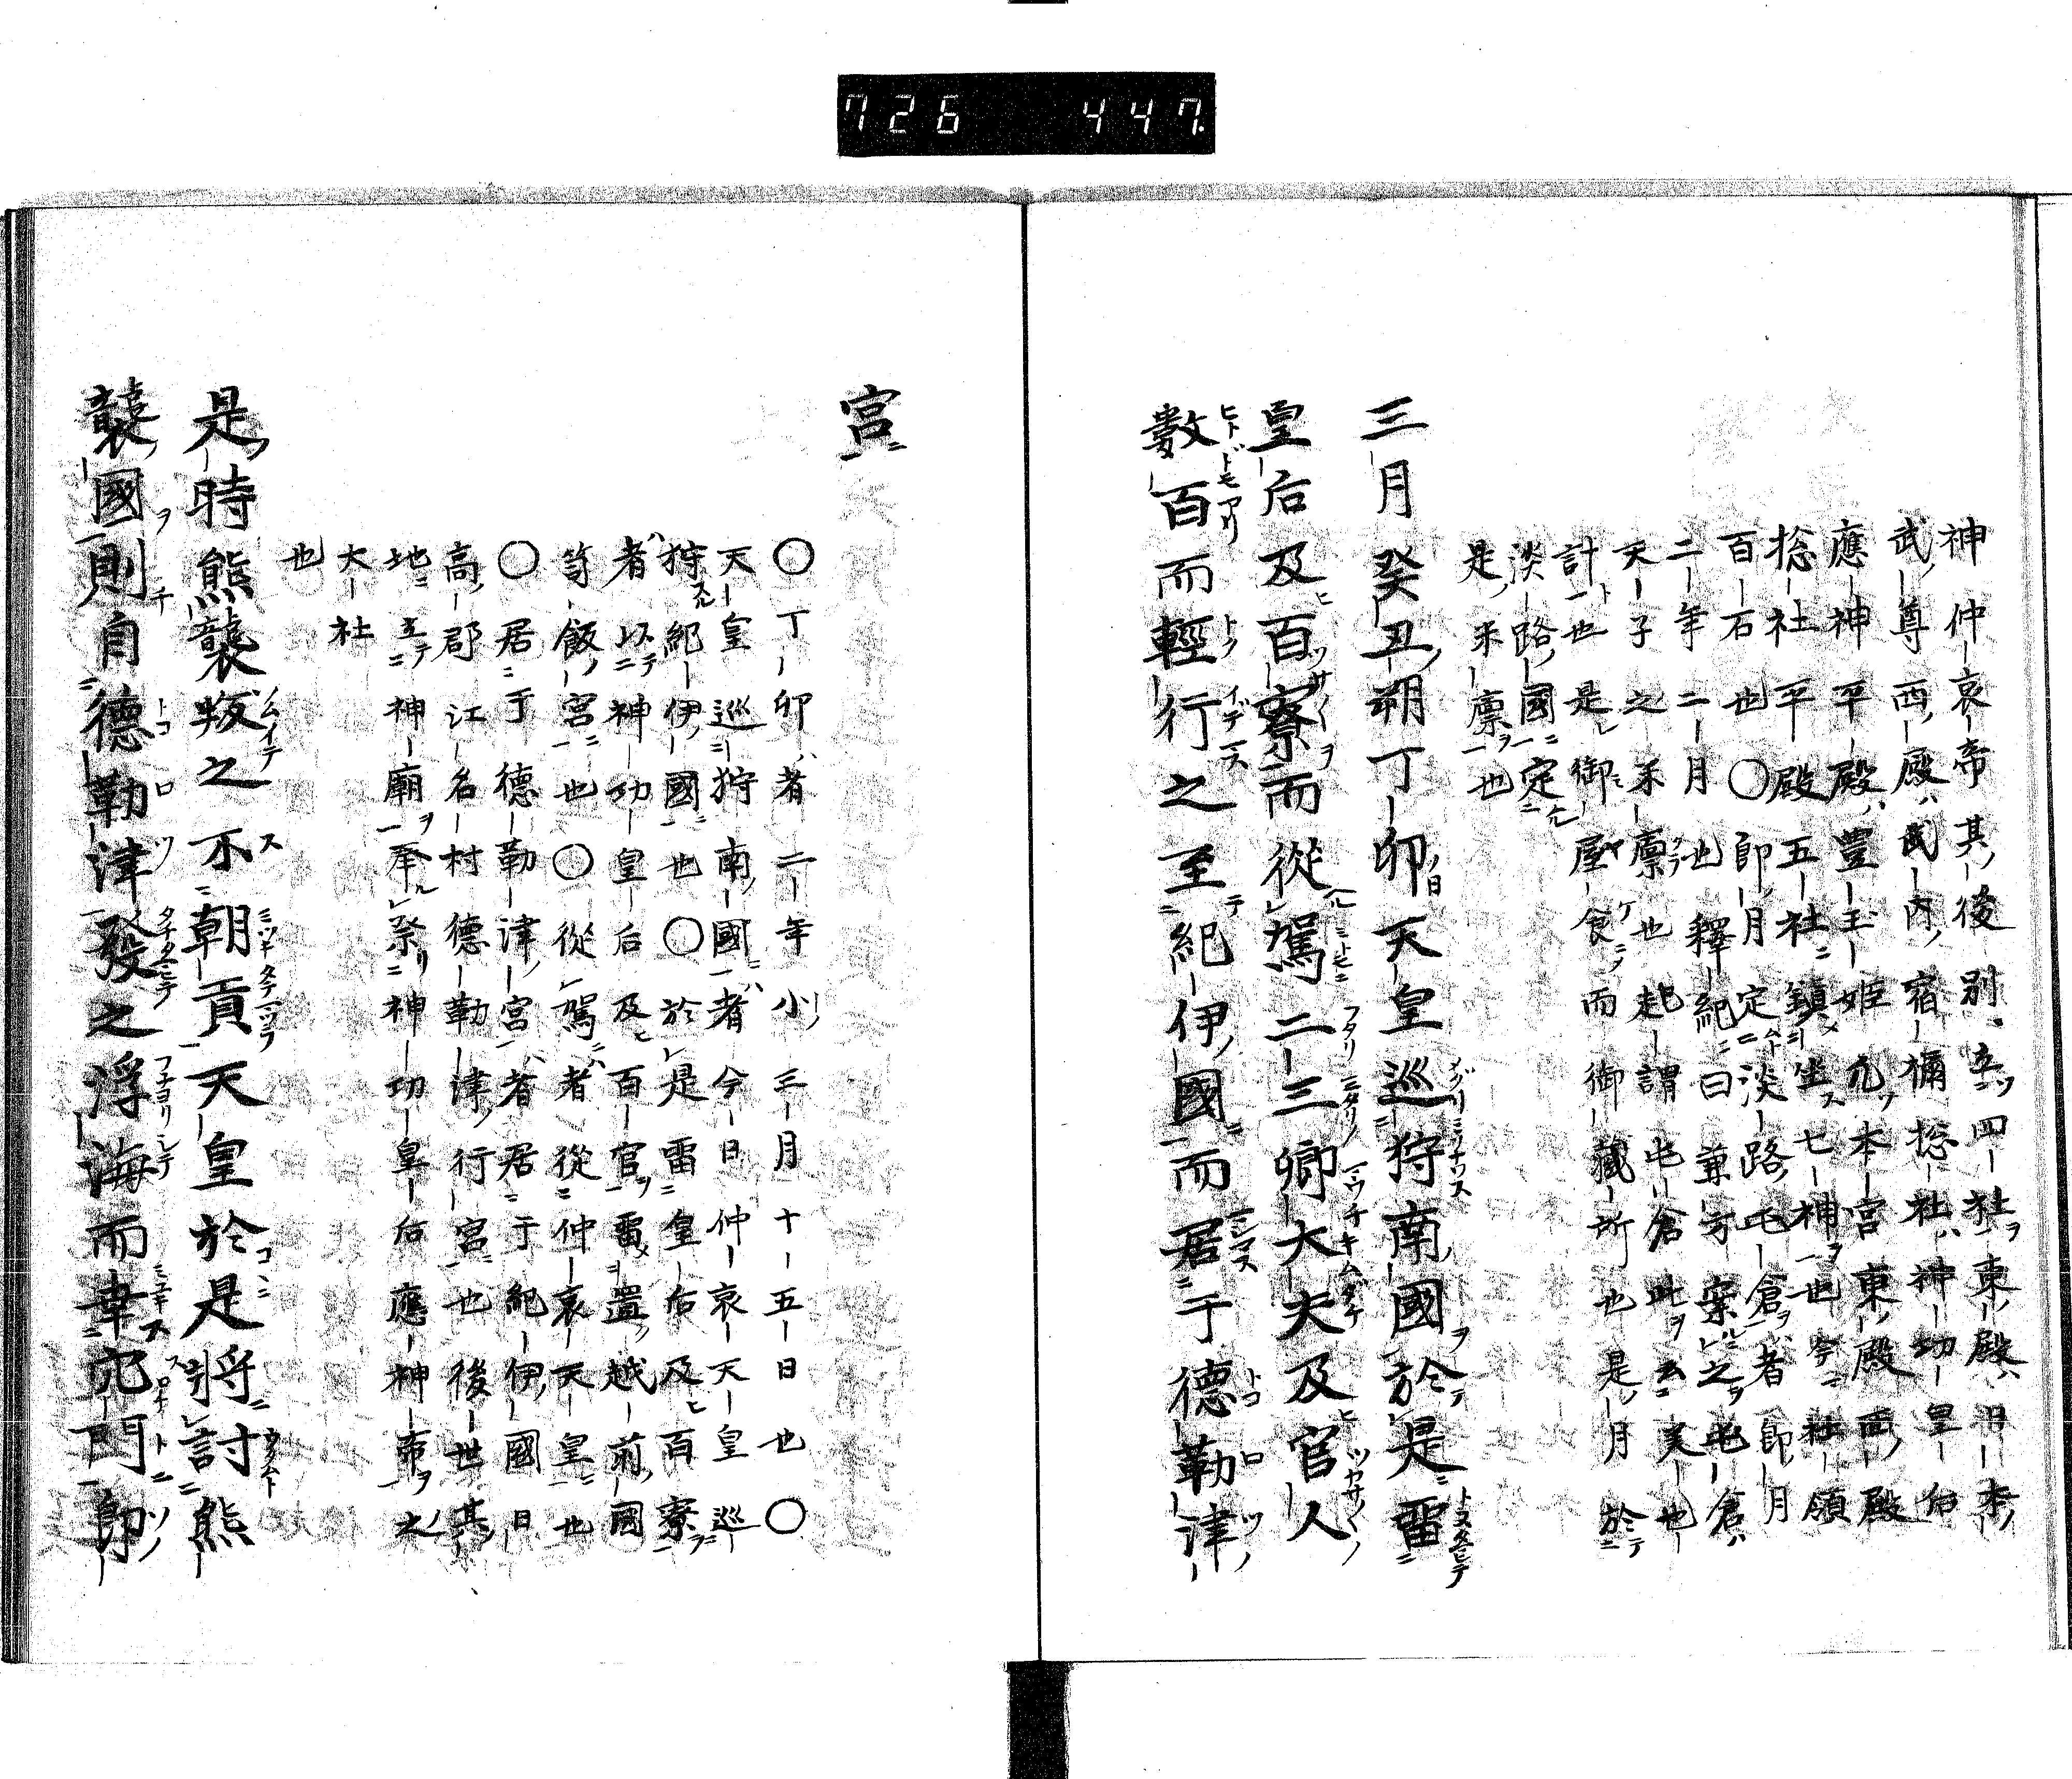 726 447.
神仲哀帝其後別立四社東殿日本
武尊西殿武内宿禰捴社神功皇后
應神平殿豊玉姫元本宮東殿西殿
捴社平殿五社鎮坐七神也今社領
百石也〇即月定淡路屯倉者即月
二年二月也釋紀曰兼方案之屯倉
天子之米廪也起謂屯倉此云美也
計也是御屋食而御藏所也是月於
淡路國定
是米廪也
三月癸丑朔丁卯天皇巡狩南國於是畱
皇后及百寮而從駕二三卿大夫及官人
數百而輕行之至紀伊國而居于德勒津
宮
〇丁卯者二年小三月十五日也〇
天皇巡狩南國者今日仲哀天皇巡
狩紀伊國也〇於是畱皇后及百寮
者以神功皇后及百官畱置越前國
笥飯宮也〇從駕者從仲哀天皇也
〇居于德勒津宮者居于紀伊國日
高郡江名村德勒津行宮也後世其
地立神廟奉祭神功皇后應神帝之
大社
也
是時熊襲叛之不朝貢天皇於是將討熊
襲國則自德勒津發之浮海而幸穴門即